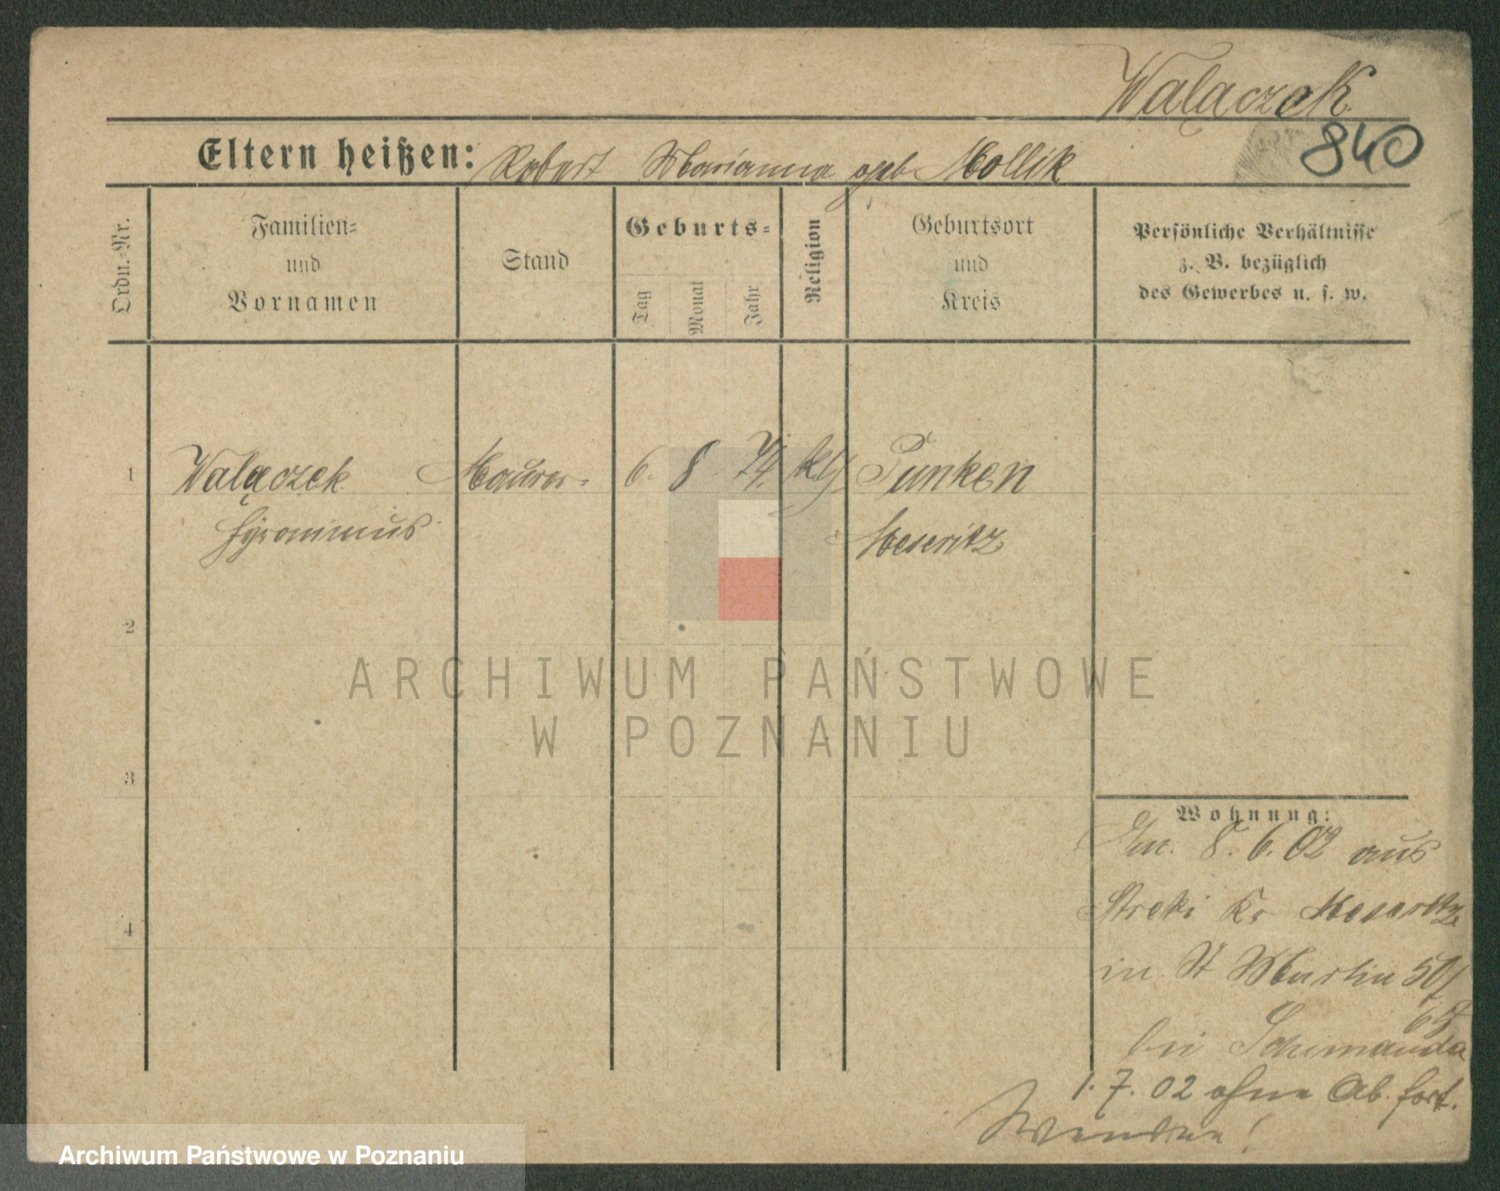 Walączek
840
Eltern heißen: Robert Marianna geb Mollik
Ordn.-Nr.
Familien-
und
Vornamen
Stand
Geburts-
Tag
Monat
Jahr
Religion
Geburtsort
und
Kreis
Persönliche Verhältnisse
z. B. bezüglich
des Gewerbes u. s. w.
1 Walączek Maurer 6. 8 74. kth Punken
Hyronimus Meseritz
2
3
4
Wohnung:
8. 6. 02 aus
Streki Kr Meseritz
in St Martin 50/
67
bei Schimanda
1. 7. 02 ohne Ab. fort.
Wenden!
ARCHIWUM PAŃSTWOWE
W POZNANIU
Archiwum Państwowe w Poznaniu